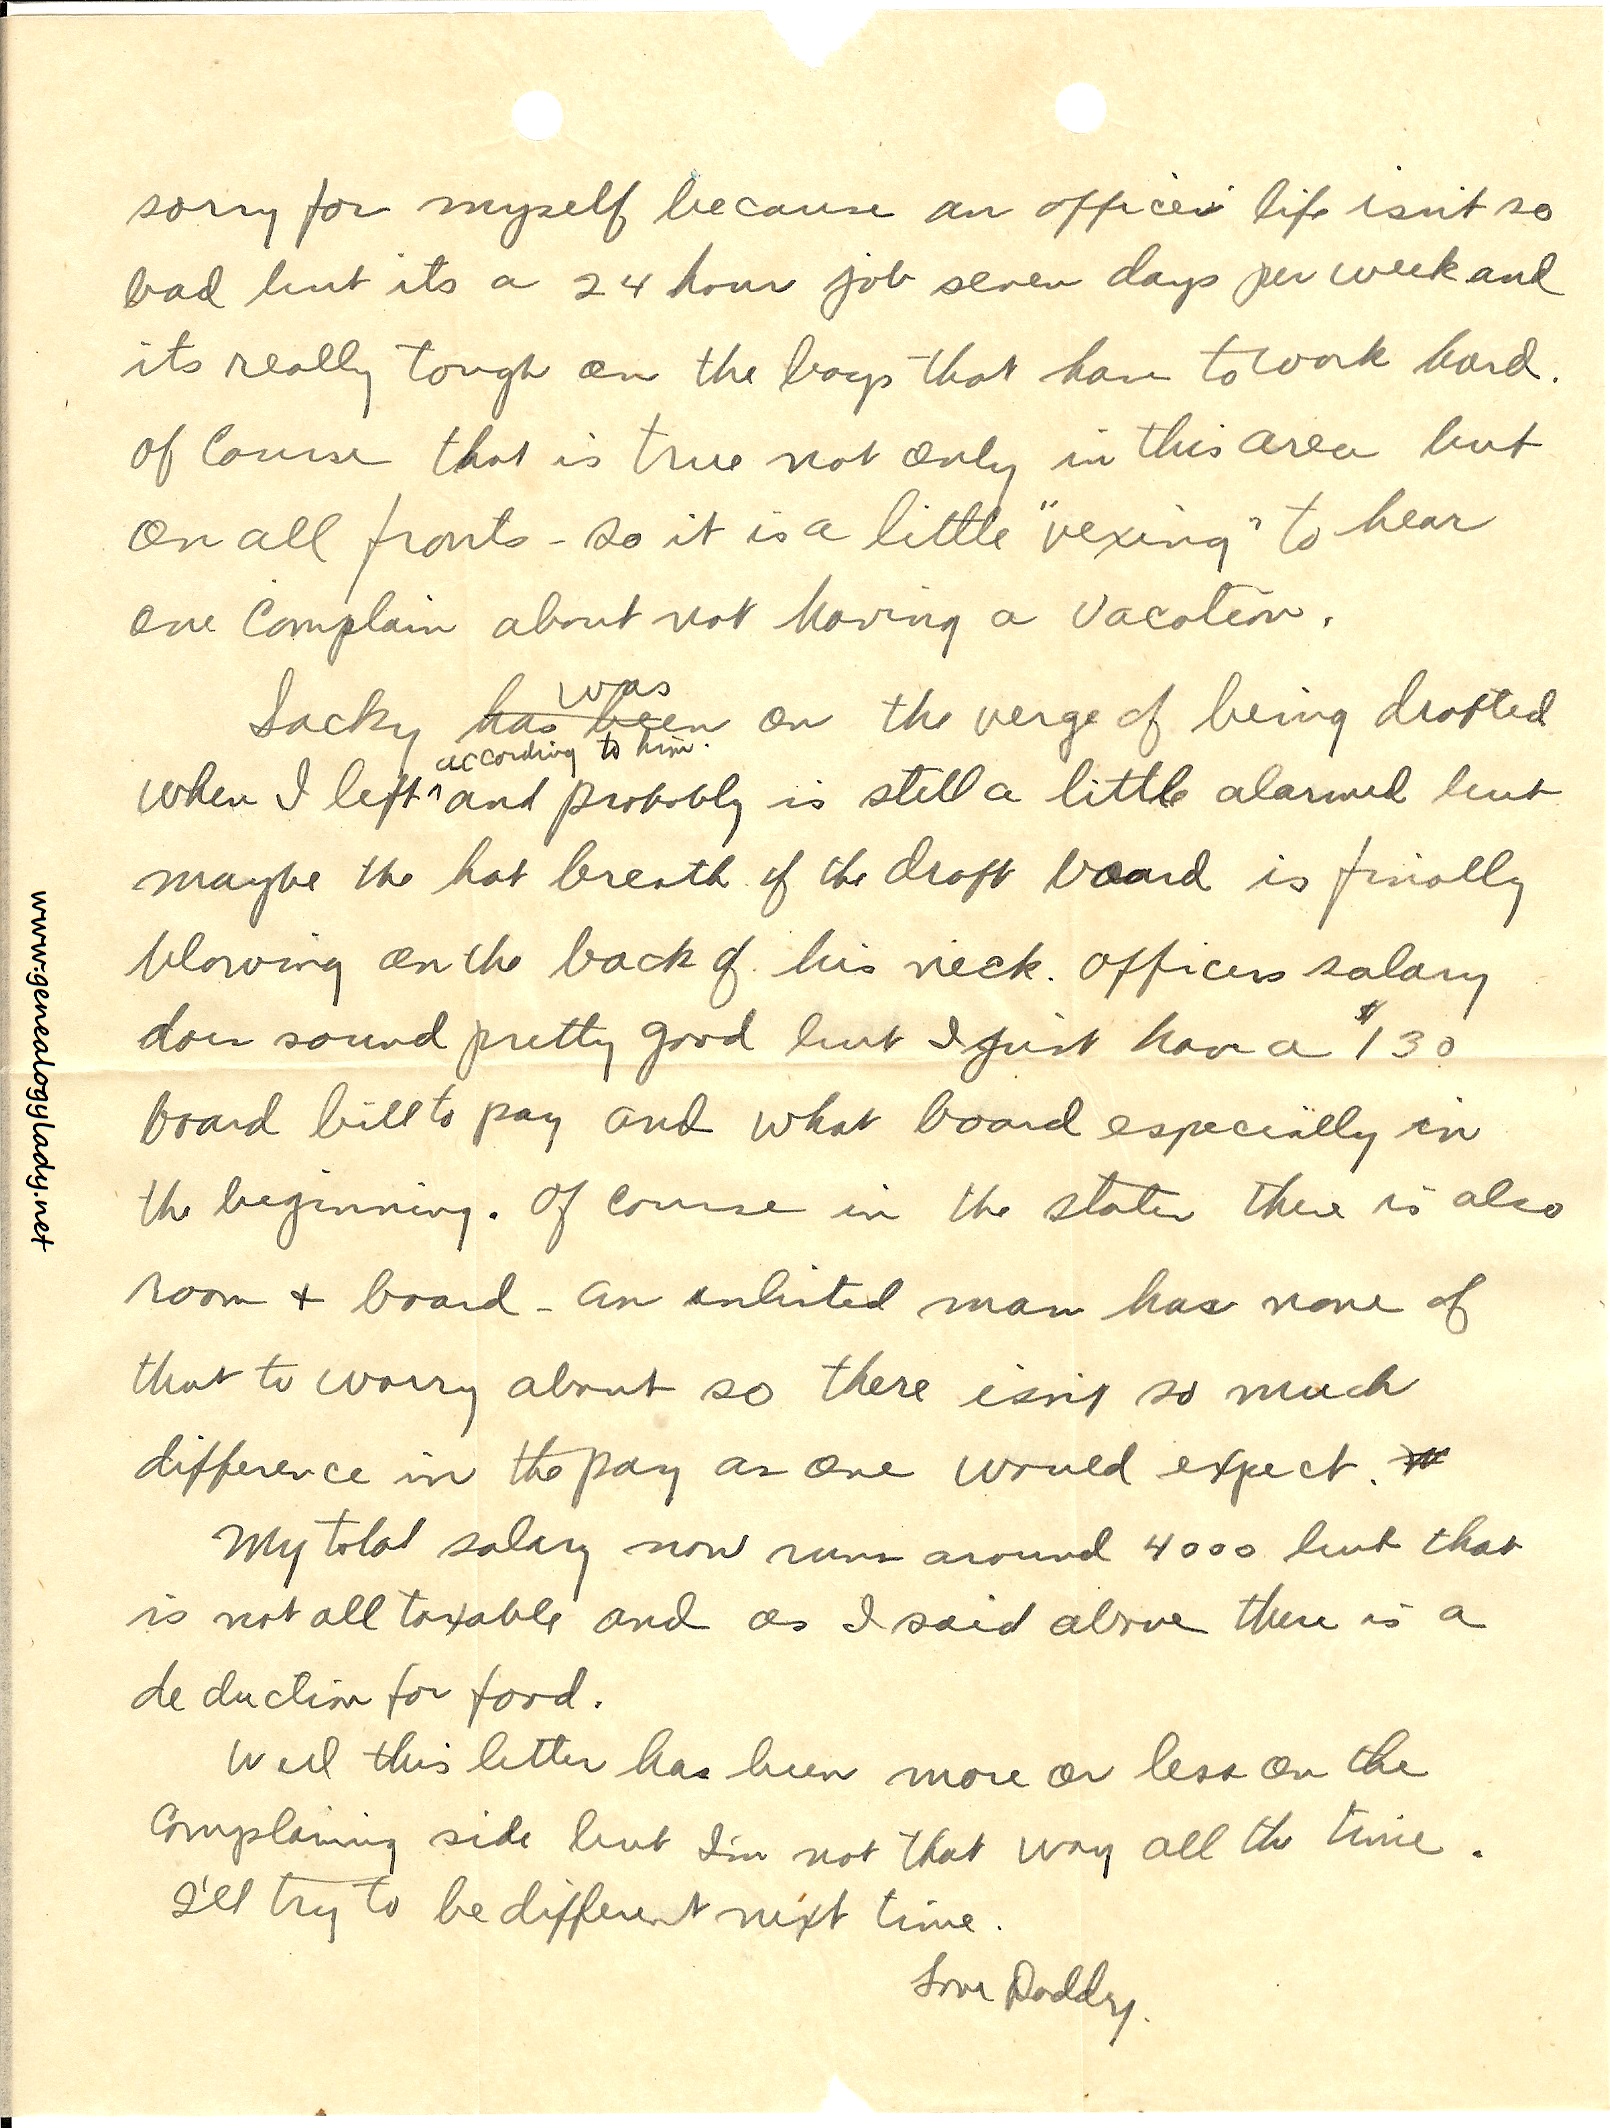 sorry for myself because an officers life isn't so
bad but its a 24 hour job seven days per week and
its really tough on the boys that have to work hard.
Of Course that is true not only in this area but
on all fronts - so it is a little "vexing" to hear
one complain about not having a vacation.
Lacky has been was on the verge of being drafted
when I left ^ according to him. and probably is still a little alarmed but
maybe the hot breath of the draft board is finally
blowing on the back of his neck. Officers salary
does sound pretty good but I just have a $130
board bill to pay and what board especially in
the beginning. Of course in the states there is also
room + board - an enlisted man has none of
that to worry about so there isn't so much
difference in the pay as one would expect.
My total salary now runs around 4000 but that
is not all taxable and as I said above there is a
deduction for food.
Well this letter has been more or less on the
Complaining side but I'm not that way all the time.
I'll try to be different next time.
Love Daddy.
www.genealogylady.net